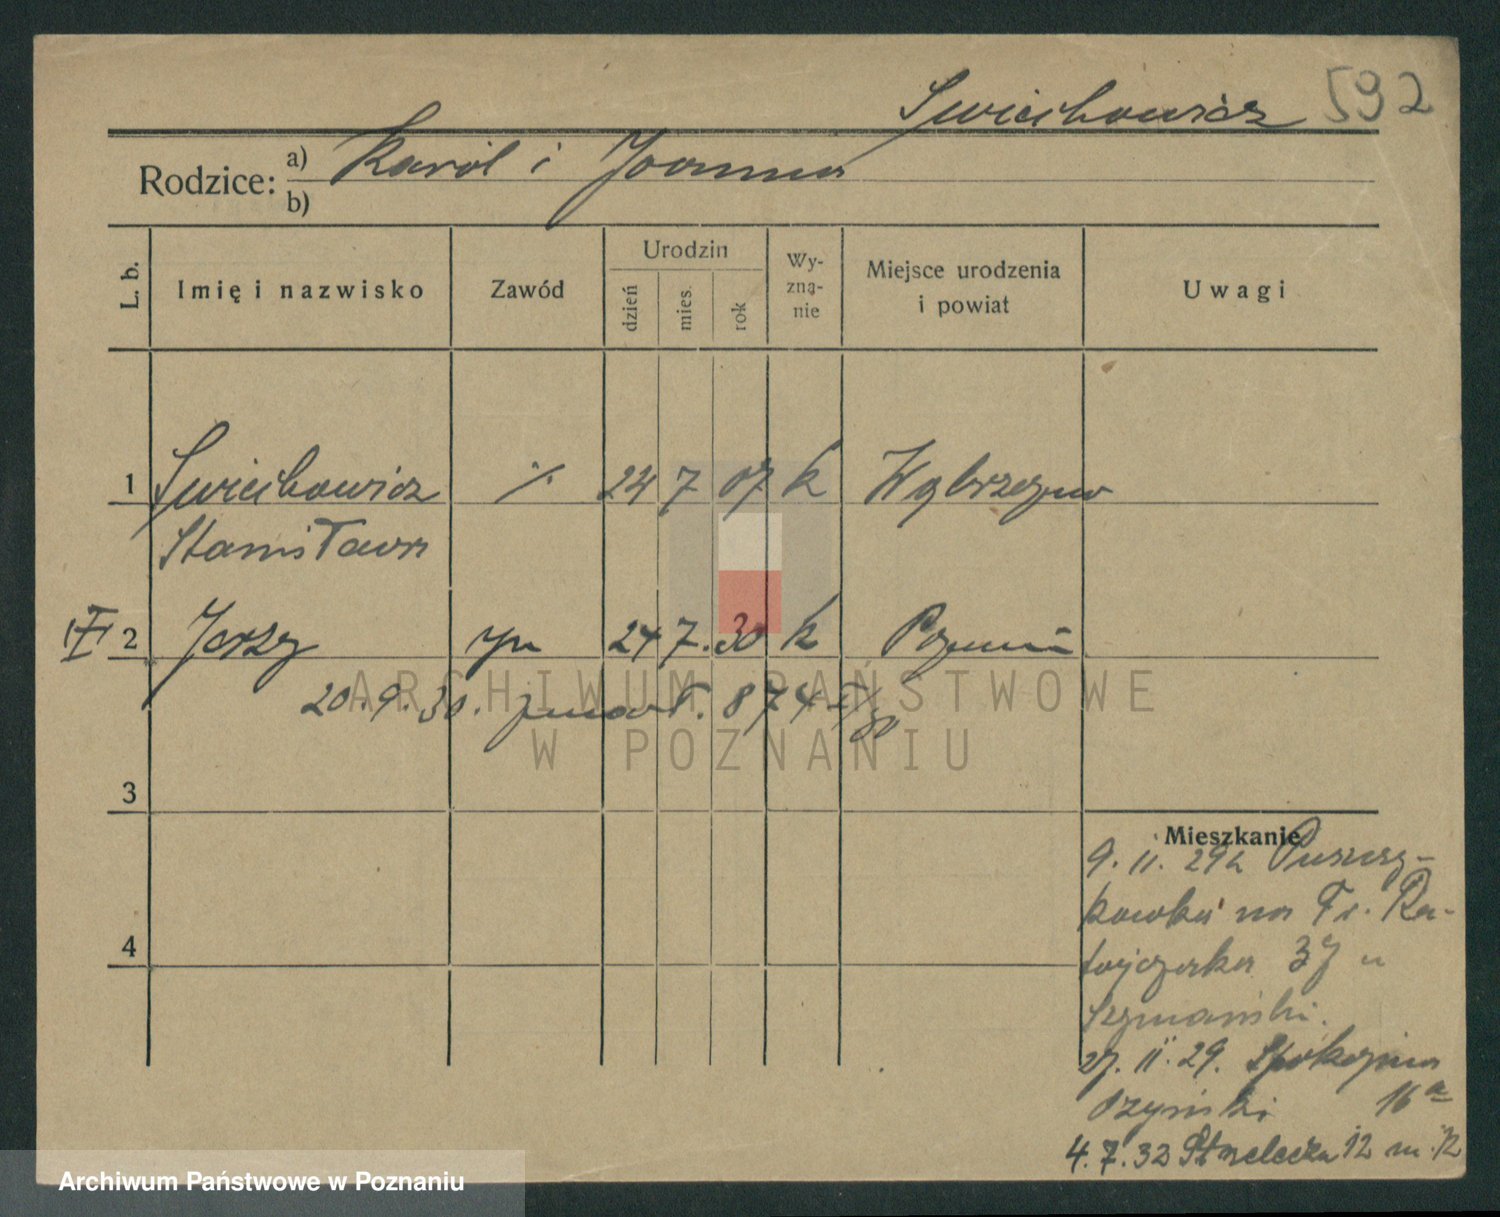 Swiechowicz 592
Rodzice: a) Karól i Joanna
b)
L. b.
Imię i nazwisko
Zawód
Urodzin
dzień
mies.
rok
Wy-
zna-
nie
Miejsce urodzenia
i powiat
Uwagi
1 Swiechowicz ./. 24 7 07 k Wąbrzeźno
Stanisława
2 Jerzy 24 7. 30 k Poznań
20.9.30. zmarł. 874
3
4
Mieszkanie
9. II. 29 z Puszczy-
kówka na Fr. Ra-
tajczaka 37 u
Szymański.
27. II. 29. Spokojna
16a
4.7.32 Strzelecka 12 m. 12
ARCHIWUM PAŃSTWOWE
W POZNANIU
Archiwum Państwowe w Poznaniu